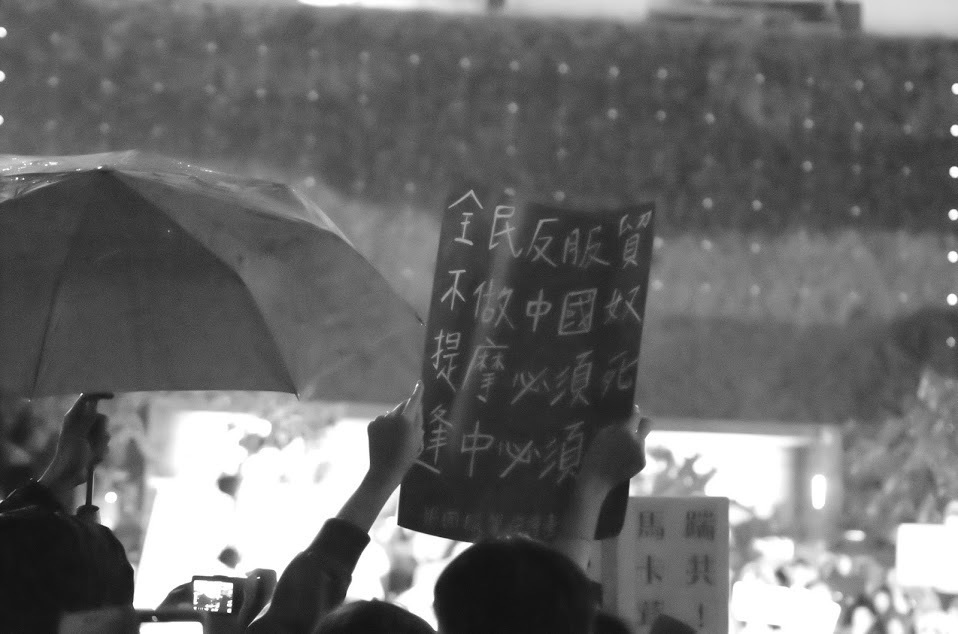 全民反服貿
不做中國奴
提摩必須死
逢中必須
踹共!
馬卡茸